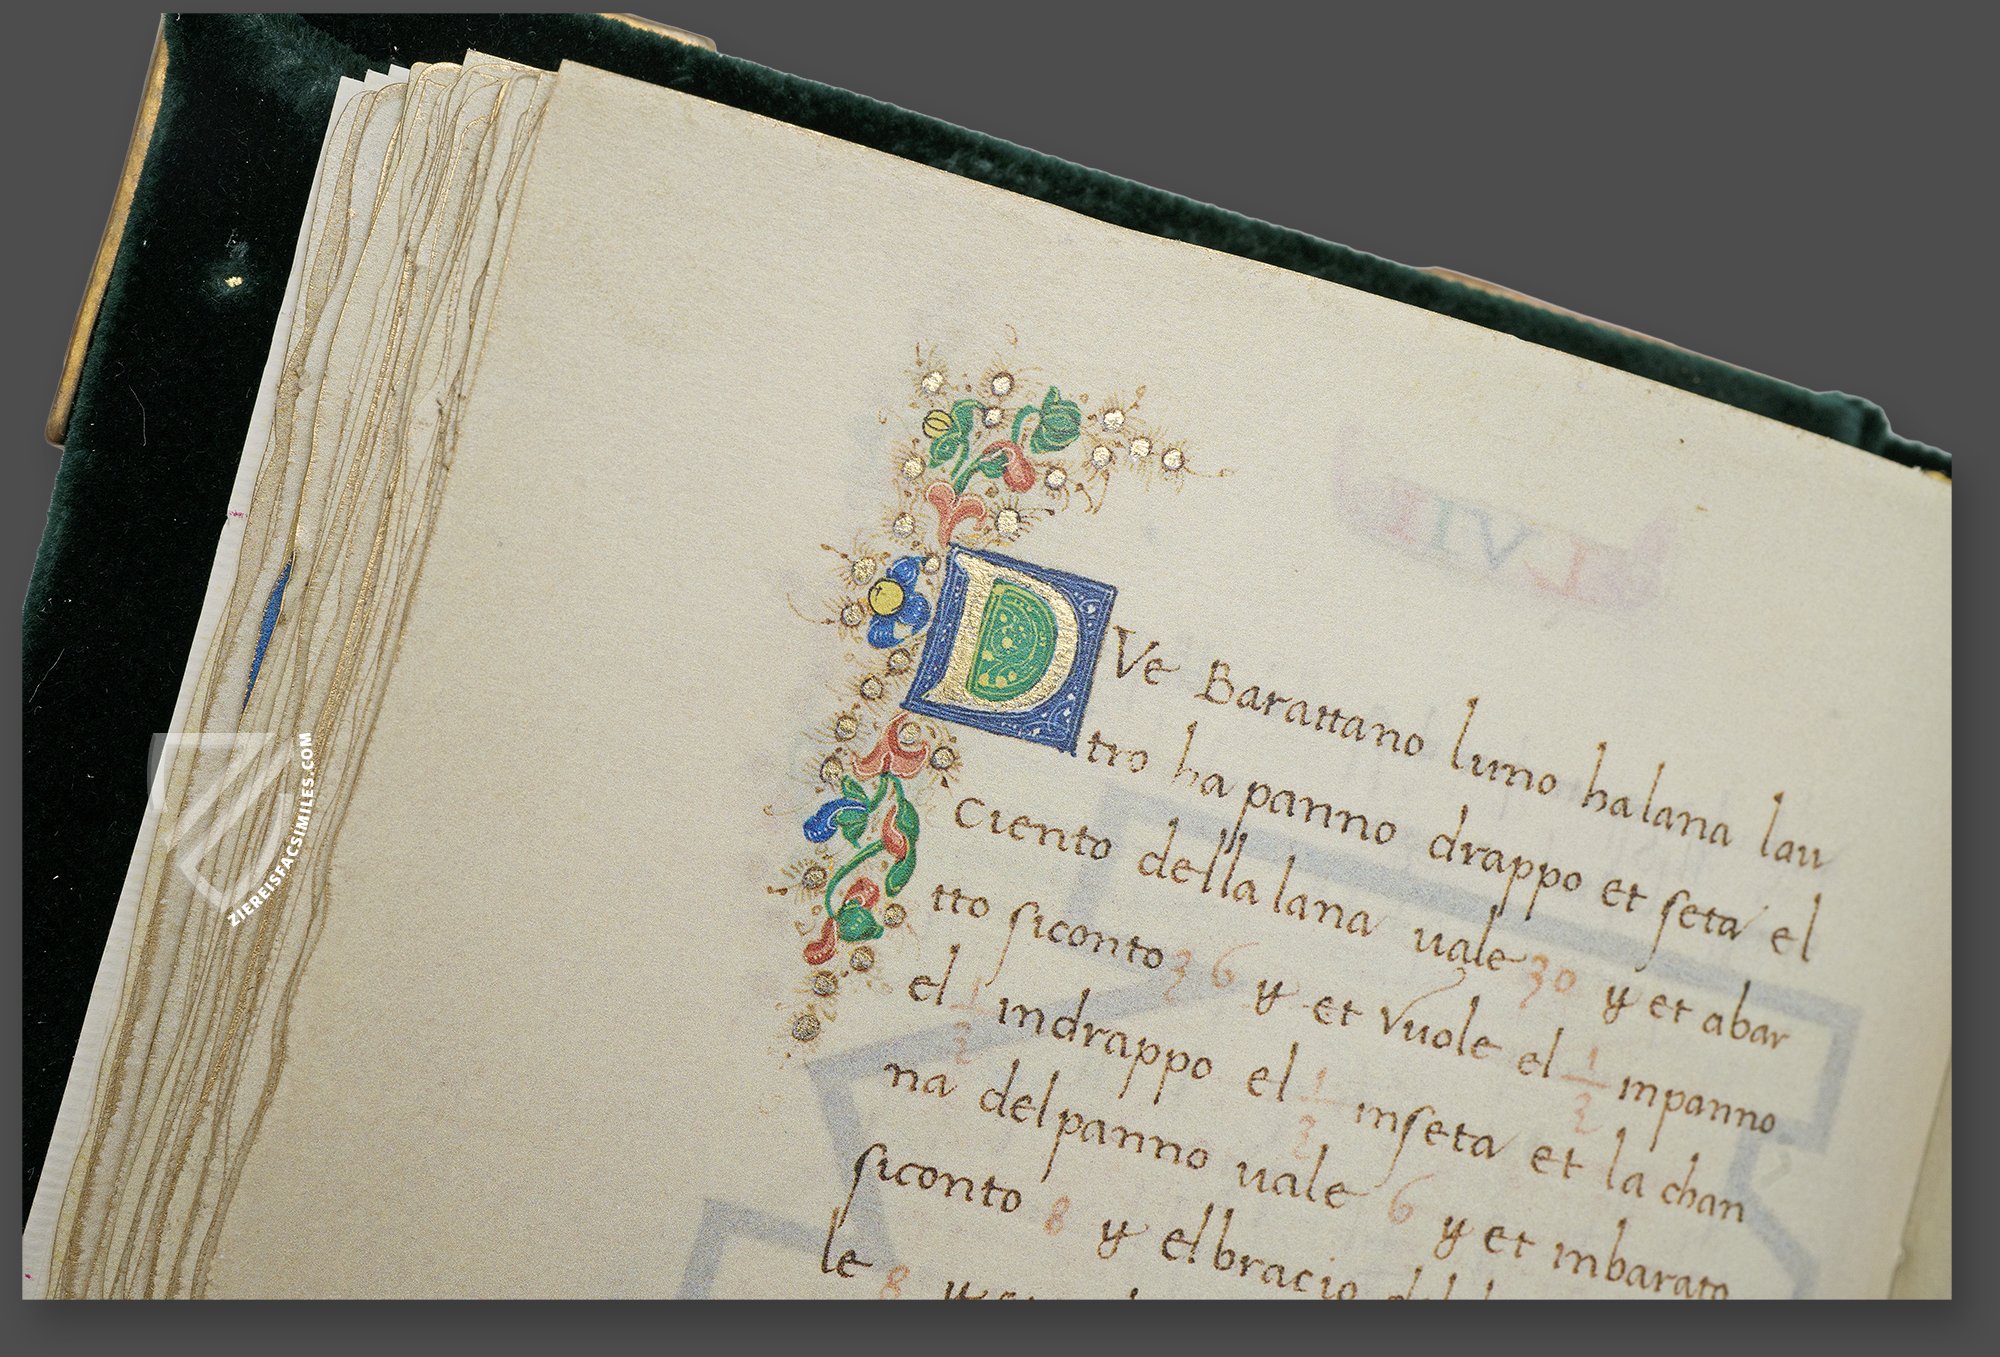 DVe Barattano luno halana lau
tro ha panno drappo et seta el
Ciento della lana uale 30 y et abar
tto siconto 36 y et vuole el 1/3 inpanno
el 1/3 indrappo el 1/3 inseta et la chan
na delpanno uale 6 y et inbarato
siconto 8 y elbracio
le 8 y
ZIEREISFACSIMILES.COM